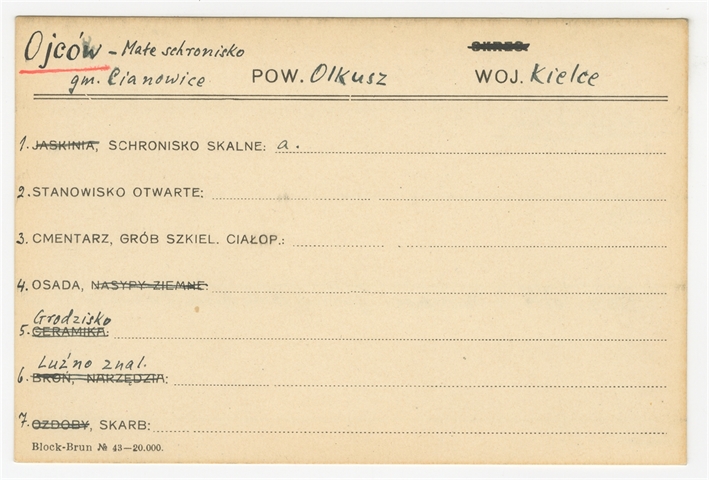 Ojców - Małe schronisko
OKRES.
gm. Cianowice POW. Olkusz WOJ. Kielce
1. JASKINIA, SCHRONISKO SKALNE: a.
2. STANOWISKO OTWARTE:
3. CMENTARZ, GRÓB SZKIEL. CIAŁOP.:
4. OSADA, NASYPY ZIEMNE:
Grodzisko
5. CERAMIKA:
Luźno znal.
6. BROŃ, NARZĘDZIA:
7. OZDOBY, SKARB:
Block-Brun № 43—20.000.